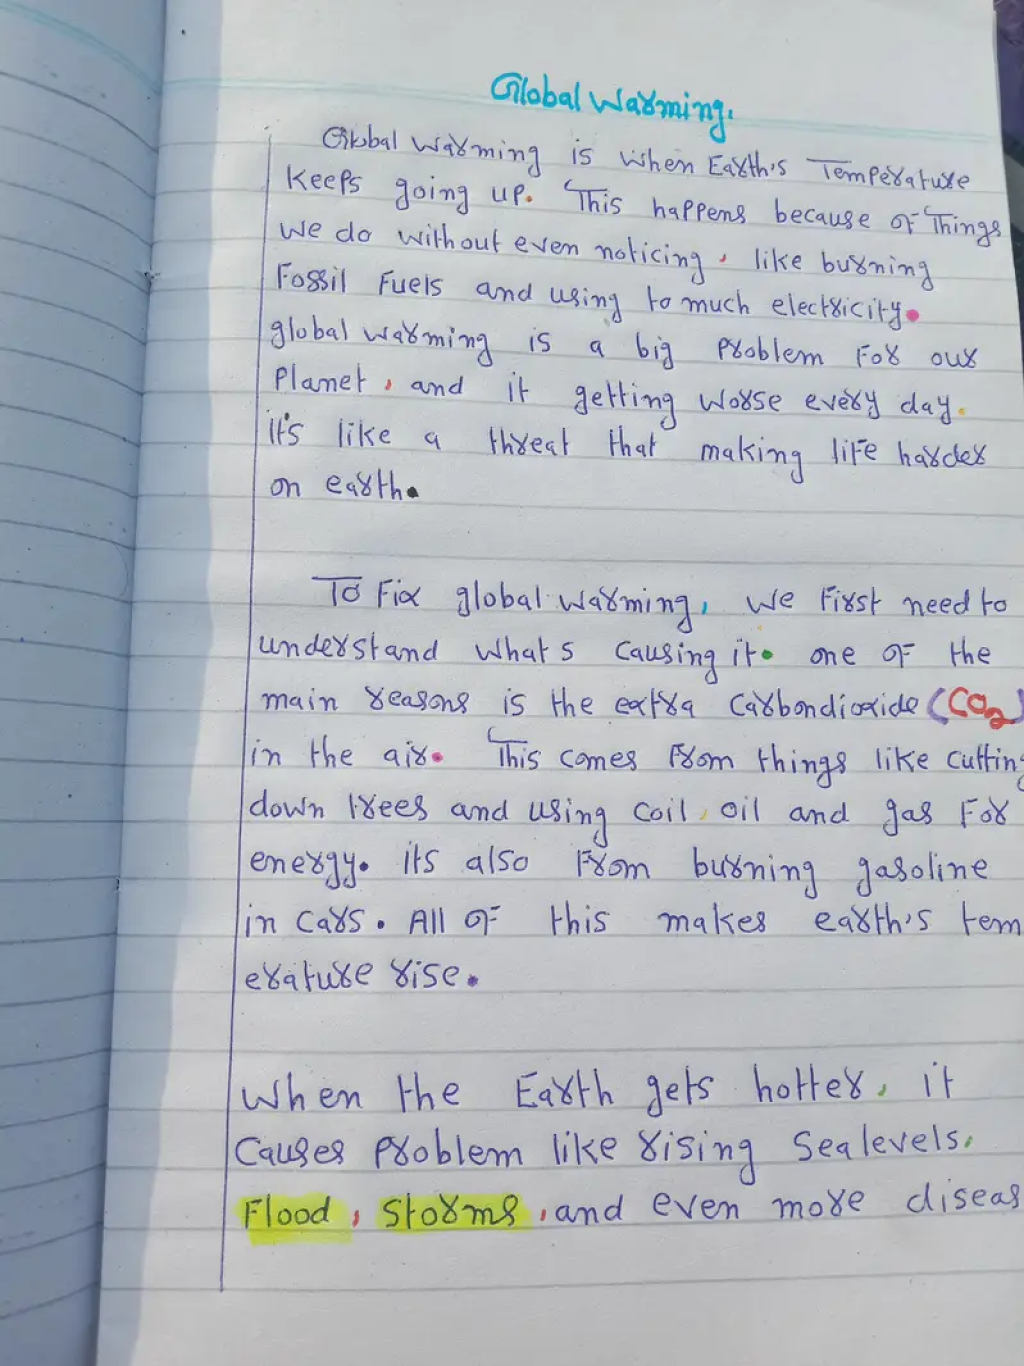 Global Warming.
Global warming is when Earth's Temperature
keeps going up. This happens because of Things
we do without even noticing, like burning
Fossil Fuels and using to much electricity.
global warming is a big problem For our
Planet, and it getting worse every day.
it's like a threat that making life harder
on earth.
To Fix global warming, we First need to
understand what s causing it. one of the
main reasons is the extra carbondioxide (CO2)
in the air. This comes From things like cuttin
down trees and using coil, oil and gas For
energy. its also From burning gasoline
in cars. All of this makes earth's tem
erature rise.
When the Earth gets hotter, it
causes problem like rising sea levels,
Flood, storms, and even more diseas